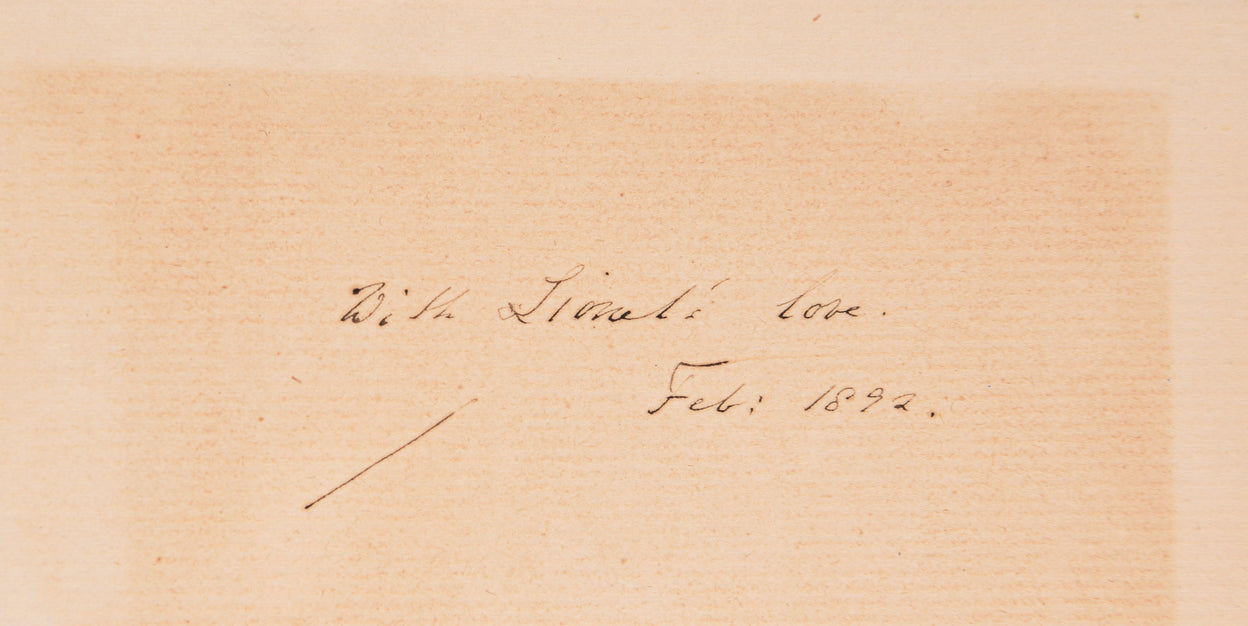 With Lionel's love.
Feb: 1892.